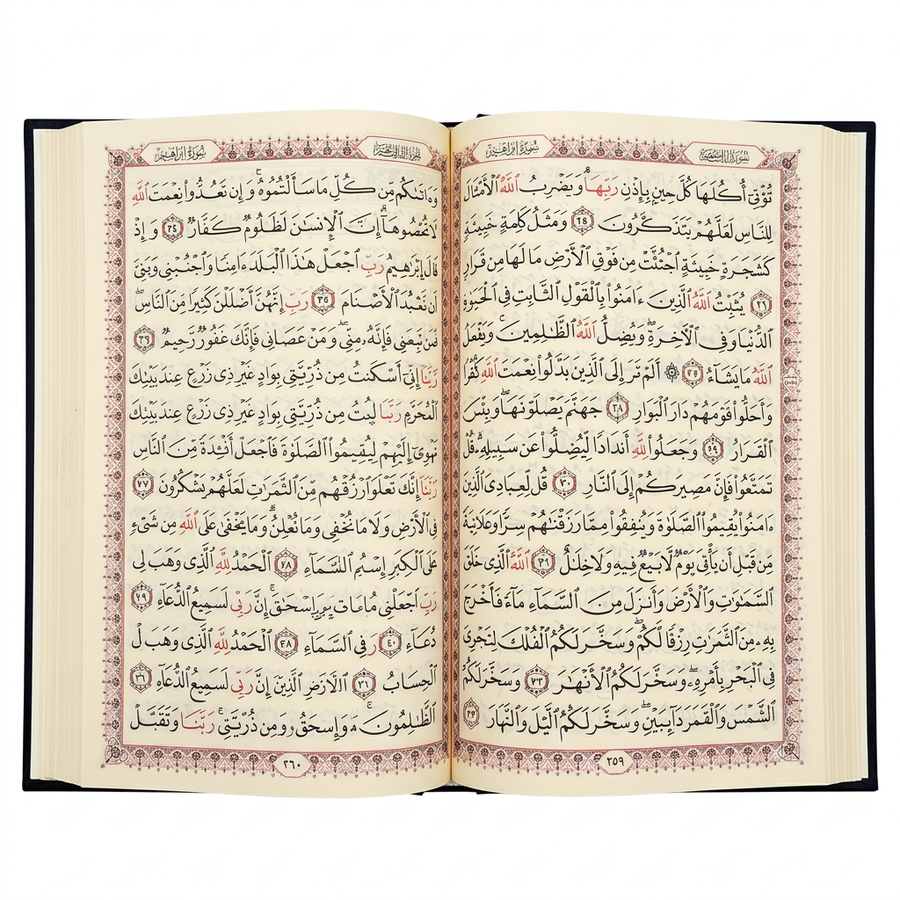 سُورَةُ ابْرَاهِيمَ
تُؤْتِىٓ أُكُلَهَا كُلَّ حِينٍ بِإِذْنِ رَبِّهَا وَيَضْرِبُ ٱللَّهُ ٱلْأَمْثَالَ
لِلنَّاسِ لَعَلَّهُمْ يَتَذَكَّرُونَ وَمَثَلُ كَلِمَةٍ خَبِيثَةٍ
كَشَجَرَةٍ خَبِيثَةٍ ٱجْتُثَّتْ مِن فَوْقِ ٱلْأَرْضِ مَا لَهَا مِن قَرَارٍ
٢٦ يُثَبِّتُ ٱللَّهُ ٱلَّذِينَ ءَامَنُوا بِٱلْقَوْلِ ٱلثَّابِتِ فِى ٱلْحَيَوٰةِ
ٱلدُّنْيَا وَفِى ٱلْأَخِرَةِ وَيُضِلُّ ٱللَّهُ ٱلظَّٰلِمِينَ وَيَفْعَلُ
ٱللَّهُ مَا يَشَآءُ ۞ أَلَمْ تَرَ إِلَى ٱلَّذِينَ بَدَّلُوا نِعْمَتَ ٱللَّهِ كُفْرًا
وَأَحَلُّوا قَوْمَهُمْ دَارَ ٱلْبَوَارِ ٢٨ جَهَنَّمَ يَصْلَوْنَهَا وَبِئْسَ
ٱلْقَرَارُ ٢٩ وَجَعَلُوا لِلَّهِ أَندَادًا لِّيُضِلُّوا عَن سَبِيلِهِ قُلْ
تَمَتَّعُوا فَإِنَّ مَصِيرَكُمْ إِلَى ٱلنَّارِ ٣٠ قُل لِّعِبَادِىَ ٱلَّذِينَ
ءَامَنُوا يُقِيمُوا ٱلصَّلَوٰةَ وَيُنفِقُوا مِمَّا رَزَقْنَٰهُمْ سِرًّا وَعَلَانِيَةً
مِّن قَبْلِ أَن يَأْتِىَ يَوْمٌ لَّا بَيْعٌ فِيهِ وَلَا خِلَٰلٌ ٣١ ٱللَّهُ ٱلَّذِى خَلَقَ
ٱلسَّمَٰوَٰتِ وَٱلْأَرْضَ وَأَنزَلَ مِنَ ٱلسَّمَآءِ مَآءً فَأَخْرَجَ
بِهِۦ مِنَ ٱلثَّمَرَٰتِ رِزْقًا لَّكُمْ وَسَخَّرَ لَكُمُ ٱلْفُلْكَ لِتَجْرِىَ
فِى ٱلْبَحْرِ بِأَمْرِهِ وَسَخَّرَ لَكُمُ ٱلْأَنْهَٰرَ وَسَخَّرَ لَكُمُ
ٱلشَّمْسَ وَٱلْقَمَرَ دَآئِبَيْنِ وَسَخَّرَ لَكُمُ ٱلَّيْلَ وَٱلنَّهَارَ
٢٥٩
سُورَةُ ابْرَاهِيمَ
وَءَاتَىٰكُم مِّن كُلِّ مَا سَأَلْتُمُوهُ وَإِن تَعُدُّوا نِعْمَتَ ٱللَّهِ
لَا تُحْصُوهَا إِنَّ ٱلْإِنسَٰنَ لَظَلُومٌ كَفَّارٌ وَإِذْ
قَالَ إِبْرَٰهِيمُ رَبِّ ٱجْعَلْ هَٰذَا ٱلْبَلَدَ ءَامِنًا وَٱجْنُبْنِى وَبَنِىَّ
أَن نَّعْبُدَ ٱلْأَصْنَامَ ٣٥ رَبِّ إِنَّهُنَّ أَضْلَلْنَ كَثِيرًا مِّنَ ٱلنَّاسِ
فَمَن تَبِعَنِى فَإِنَّهُ مِنِّى وَمَنْ عَصَانِى فَإِنَّكَ غَفُورٌ رَّحِيمٌ ٣٦
رَّبَّنَا إِنِّىٓ أَسْكَنتُ مِن ذُرِّيَّتِى بِوَادٍ غَيْرِ ذِى زَرْعٍ عِندَ بَيْتِكَ
ٱلْمُحَرَّمِ رَبَّنَا مِن ذُرِّيَّتِى بِوَادٍ غَيْرِ ذِى زَرْعٍ عِندَ بَيْتِكَ
تَهْوِىٓ إِلَيْهِمْ لِيُقِيمُوا ٱلصَّلَوٰةَ فَٱجْعَلْ أَفْئِدَةً مِّنَ ٱلنَّاسِ
رَبَّنَا إِنَّكَ تَعْلَوا ٱرْزُقْهُم مِّنَ ٱلثَّمَرَٰتِ لَعَلَّهُمْ يَشْكُرُونَ
فِى ٱلْأَرْضِ وَلَا مَا نُخْفِى وَمَا نُعْلِنُ وَمَا يَخْفَىٰ عَلَى ٱللَّهِ مِن شَىْءٍ
عَلَى ٱلْكِبَرِ ٱلسَّمَآءِ ٱلْحَمْدُ لِلَّهِ ٱلَّذِى وَهَبَ لِى
رَبِّ ٱجْعَلْنِى إِسْحَٰقَ إِنَّ رَبِّى لَسَمِيعُ ٱلدُّعَآءِ
دُعَآءِ ٤٠ فِى ٱلسَّمَآءِ ٣٨ ٱلْحَمْدُ لِلَّهِ ٱلَّذِى وَهَبَ ل
ٱلْحِسَابُ ٣١ ٱلَّذِينَ إِنَّ رَبِّى لَسَمِيعُ ٱلدُّعَآءِ ٣٦
ٱلظَّٰلِمُونَ وَإِسْحَٰقَ وَمِن ذُرِّيَّتِى رَبَّنَا وَتَقَبَّلْ
٢٦٠